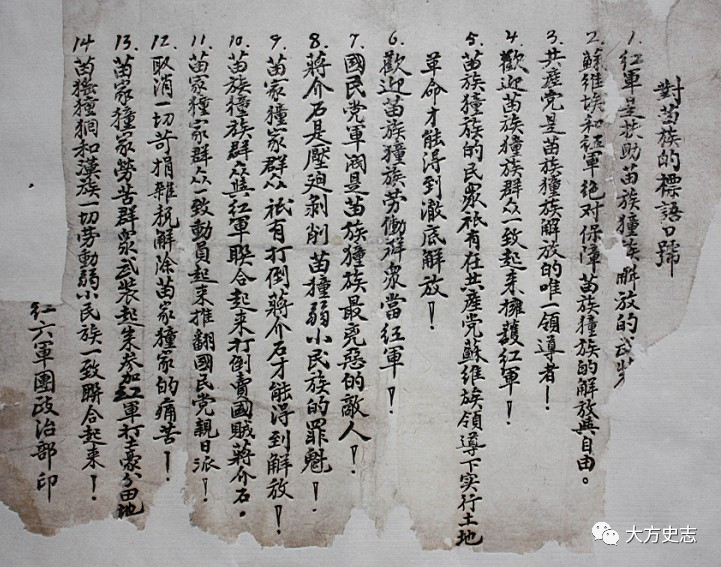 對苗族的標語口號
1. 紅軍是扶助苗族獞族解放的武
2. 蘇維埃和紅軍绝对保障苗族獞族的解放與自由。
3. 共產党是苗族獞族解放的唯一領導者！
4. 歡迎苗族獞族群众一致起來擁護紅軍！
5. 苗族獞族的民眾衹有在共產党蘇維族領導下实行土地
革命才能得到澈底解放！
6. 歡迎苗族獞族劳働群衆當紅軍！
7. 國民党軍阀是苗族獞族最兇惡的敵人！
8. 蔣介石是壓迫剥削苗獞弱小民族的罪魁！
9. 苗家獞家群众衹有打倒蔣介石才能得到解放！
10. 苗族獞族群众與紅軍聯合起来打倒賣國賊蔣介石。
11. 苗家獞家群众一致動員起来推翻國民党親日派！
12. 取消一切苛捐雜税解除苗家獞家的痛苦！
13. 苗家獞家勞苦群衆武装起来参加紅軍打土豪分田地
14. 苗猺獞狪和漢族一切劳動弱小民族一致聯合起来！
红六軍團政治部印
大方史志